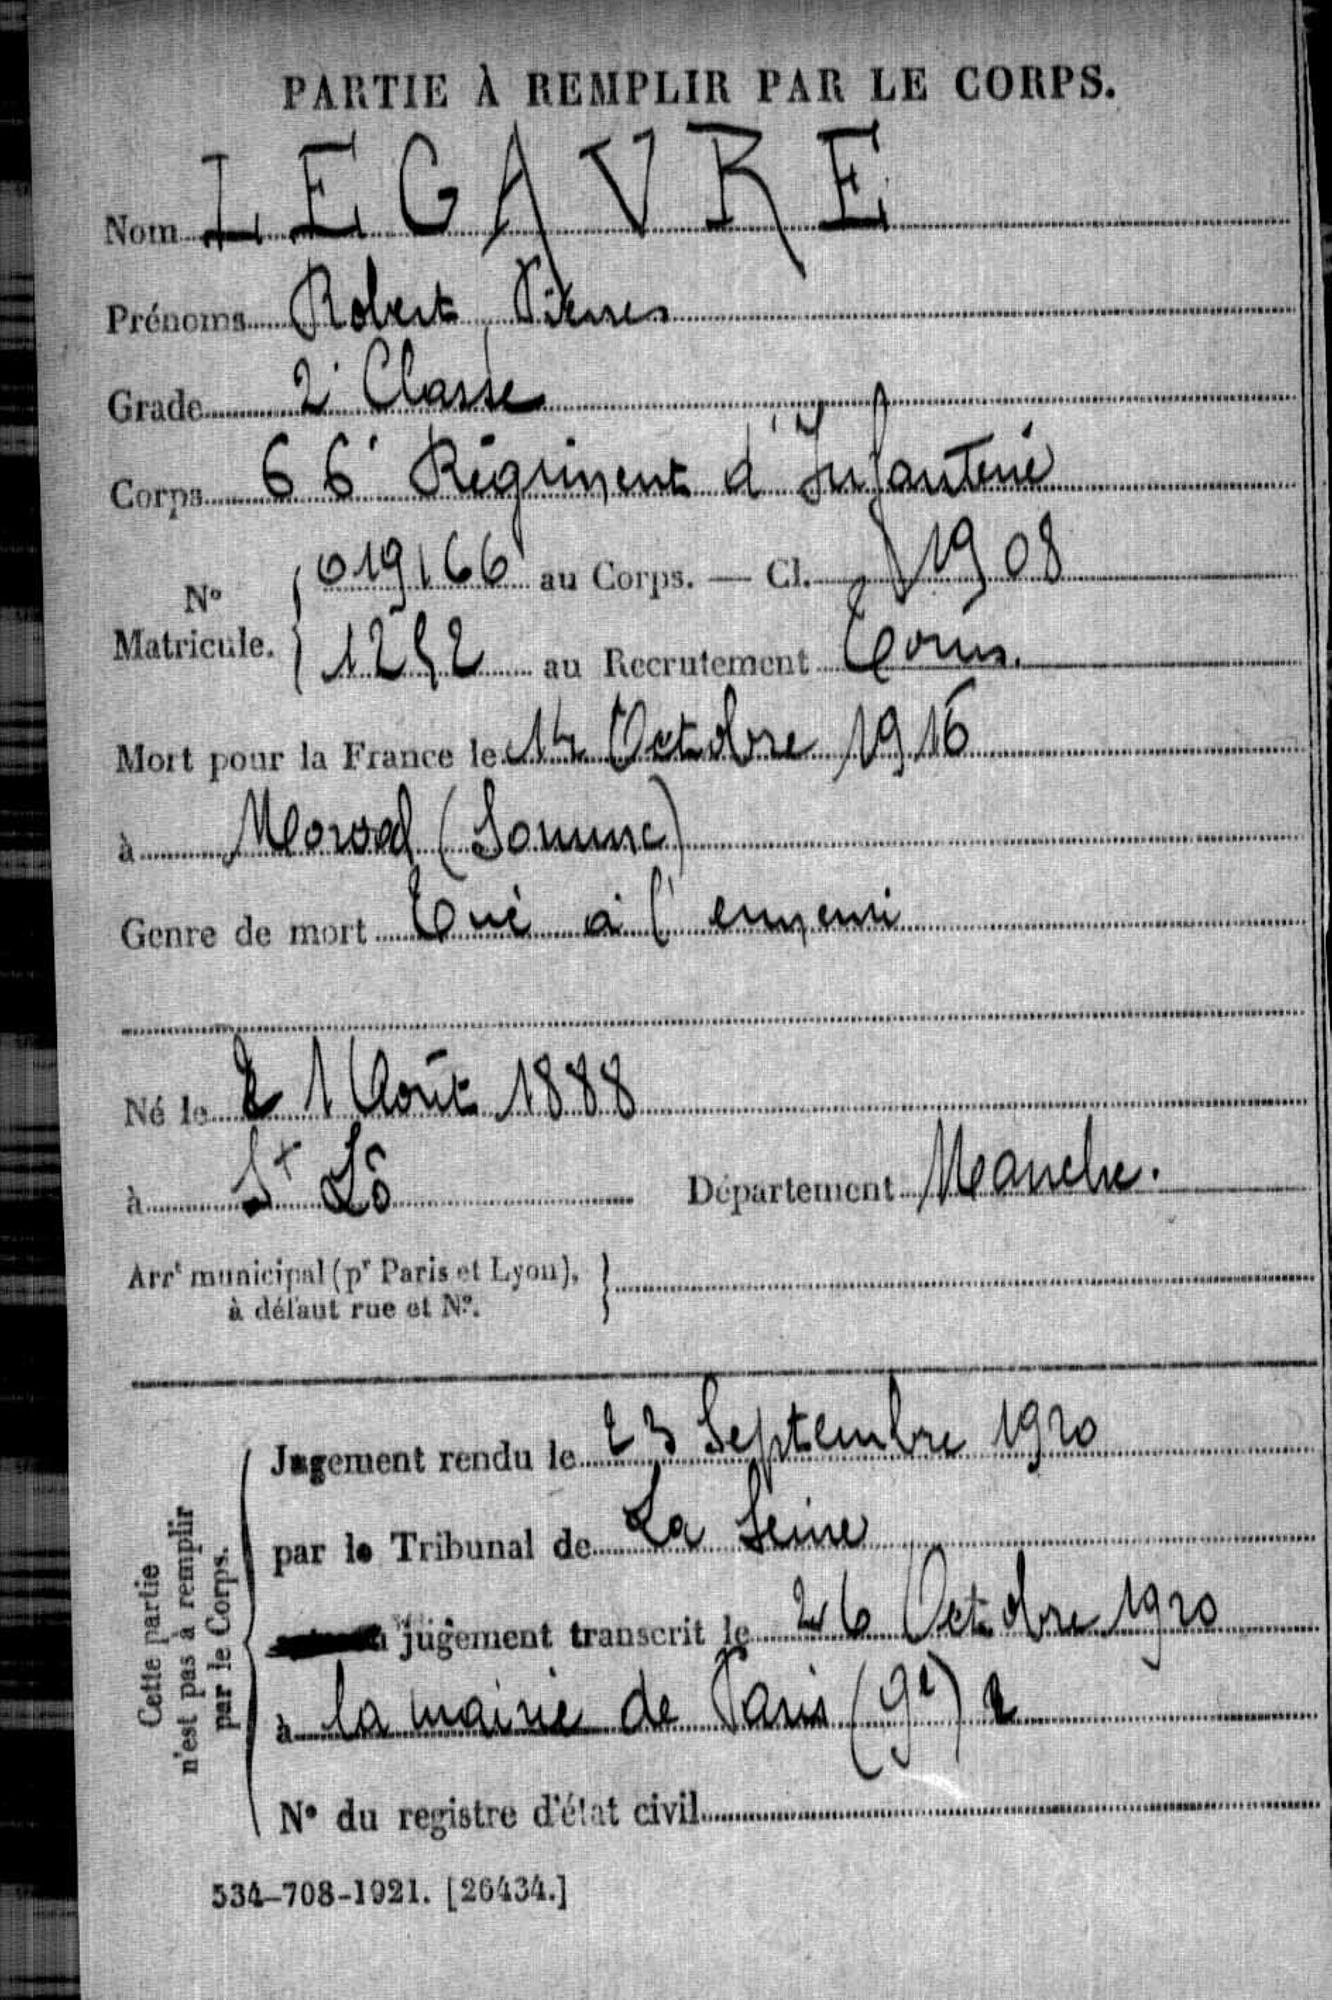 PARTIE À REMPLIR PAR LE CORPS.
Nom LEGAVRE
Prénoms Robert Pierres
Grade 2e Classe
Corps 66e Régiment d'Infanterie
N° Matricule. { 019166 au Corps. — Cl. 1908
1252 au Recrutement Tours.
Mort pour la France le 14 Octobre 1916
à Morval (Somme)
Genre de mort Tué à l'ennemi
Né le 21 Août 1888
à St Lô Département Manche.
Arrt municipal (pr Paris et Lyon), }
à défaut rue et N°.
Cette partie n'est pas à remplir par le Corps.
Jugement rendu le 23 Septembre 1920
par le Tribunal de La Seine
jugement transcrit le 26 Octobre 1920
à la mairie de Paris (9e)
N° du registre d'état civil
534-708-1921. [26434.]